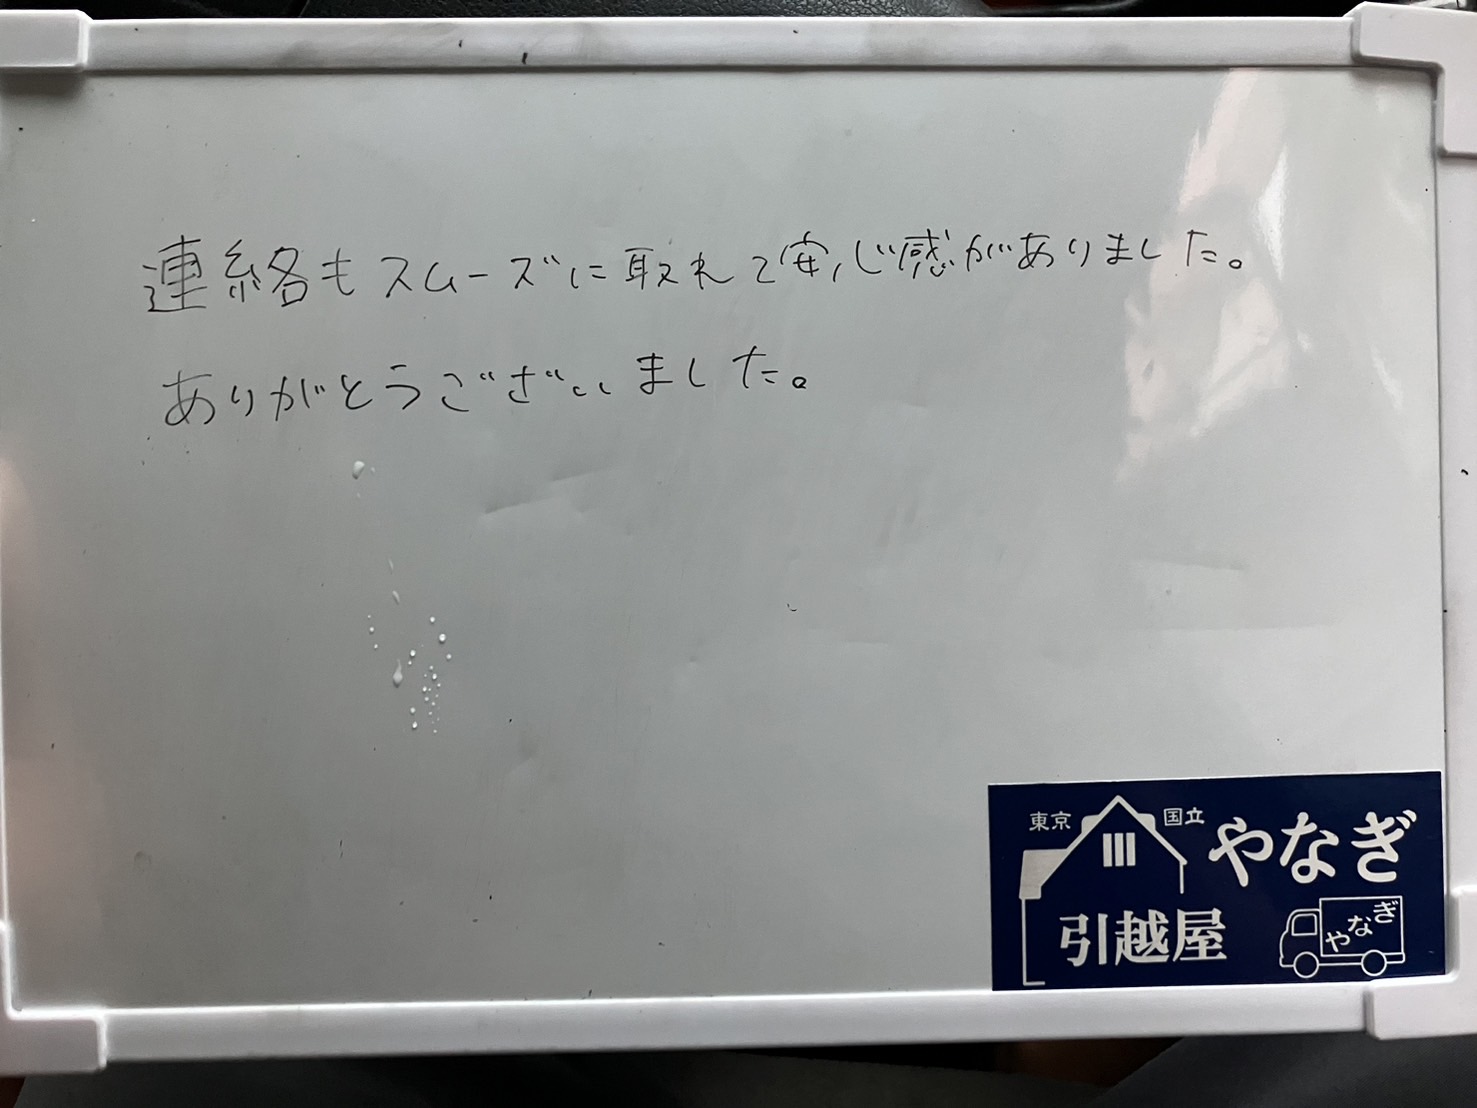 連絡もスムーズに取れて安心感がありました。
ありがとうございました。
東京 国立 やなぎ
引越屋
やなぎ